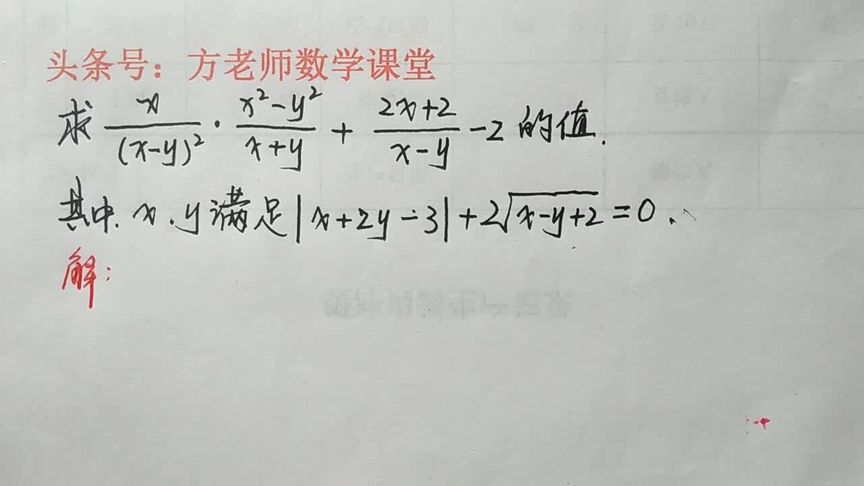 头条号：方老师数学课堂
求 x/(x-y)² · (x²-y²)/(x+y) + (2x+2)/(x-y) -2 的值.
其中. x.y满足|x+2y-3|+2√(x-y+2)=0.
解：